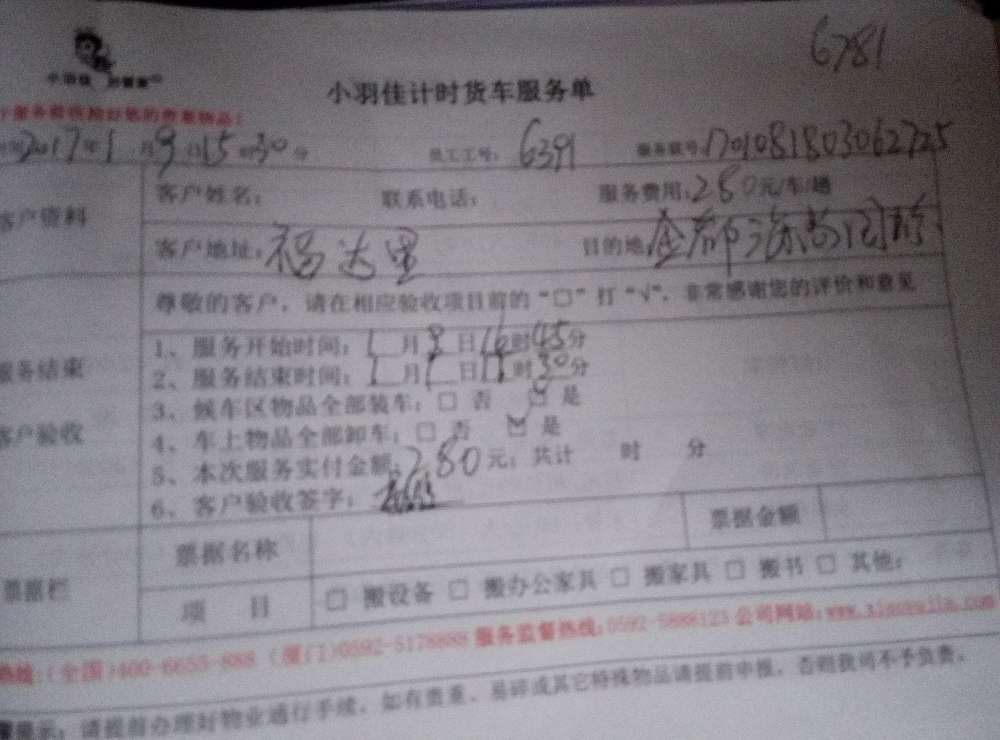 6781
小羽佳
小羽佳计时货车服务单
2017年1月9日15时30分 员工工号：6391 服务账号：170108180306272​5
客户资料
客户姓名： 联系电话： 服务费用：280元/车/趟
客户地址：福达里 目的地：金都
尊敬的客户，请在相应验收项目前的“□”打“√”，非常感谢您的评价和意见
服务结束
客户验收
1、服务开始时间：1月8日16时45分
2、服务结束时间：1月 日 时30分
3、候车区物品全部装车：□ 否 ☑ 是
4、车上物品全部卸车：□ 否 ☑ 是
5、本次服务实付金额：280元；共计 时 分
6、客户验收签字：
票据栏
票据名称 票据金额
项 目 □ 搬设备 □ 搬办公家具 □ 搬家具 □ 搬书 □ 其他：
热线：(全国)400-6655-888 (厦门)0592-5178888 服务监督热线：0592-5888123 公司网站：www.xiaoyujia.com
提示：请提前办理好物业通行手续，如有贵重、易碎或其它特殊物品请提前申报，否则我司不予负责。